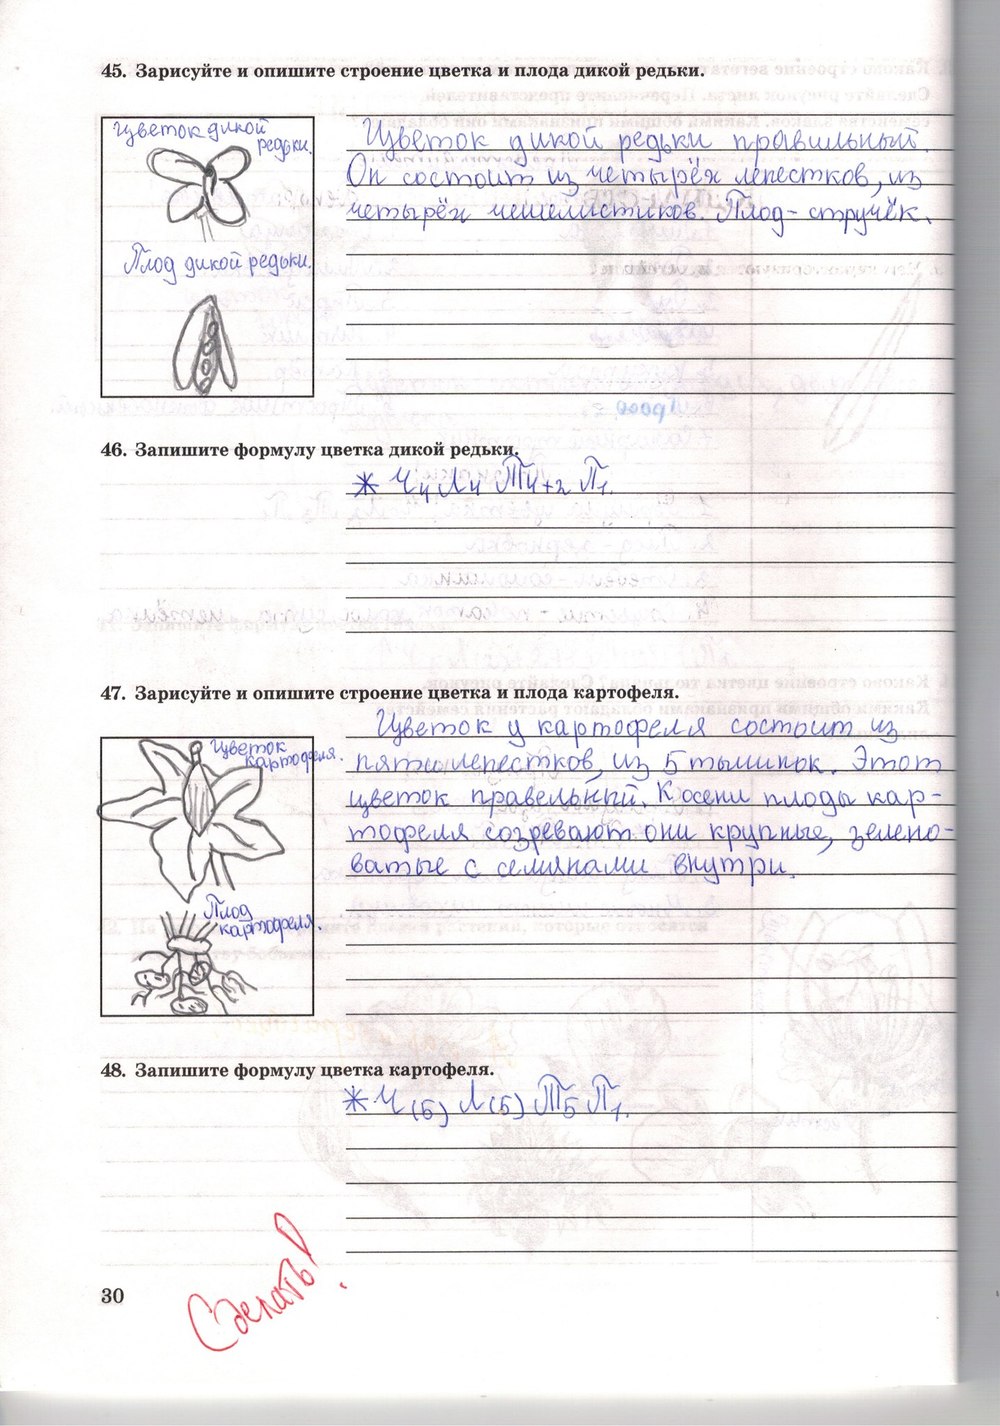 45. Зарисуйте и опишите строение цветка и плода дикой редьки.
Цветок дикой
редьки.
Плод дикой редьки.
Цветок дикой редьки правильный.
Он состоит из четырёх лепестков, из
четырёх чешелистиков. Плод - стручёк.
46. Запишите формулу цветка дикой редьки.
* Ч4 Л4 Т4+2 П1.
47. Зарисуйте и опишите строение цветка и плода картофеля.
Цветок
картофеля.
Плод
картофеля.
Цветок у картофеля состоит из
пяти лепестков, из 5 тычинок. Этот
цветок правельный. К осени плоды кар-
тофеля созревают они крупные, зелено-
ватые с семянами внутри.
48. Запишите формулу цветка картофеля.
* Ч(5) Л(5) Т5 П1.
30
Сделать!